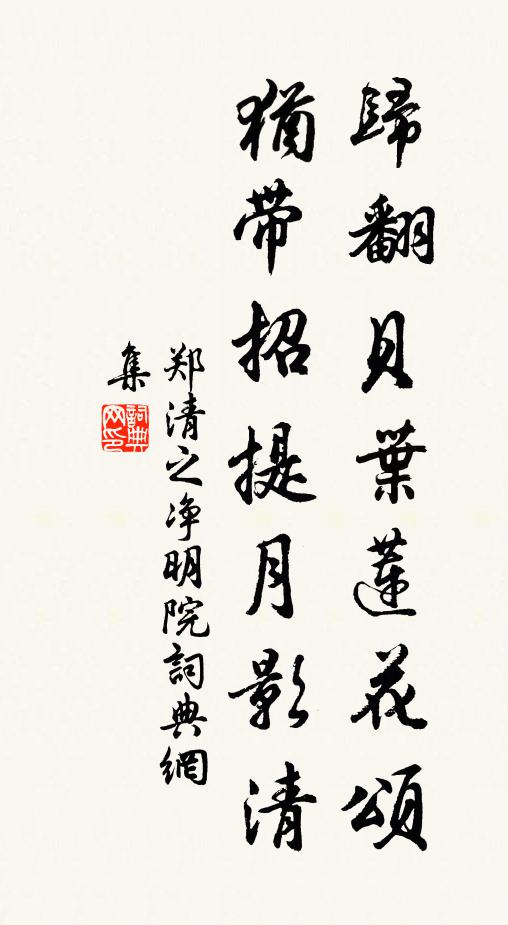 歸翻貝葉蓮花頌
猶帶招提月影清
郑清之净明院詞典網
集
詞典网印